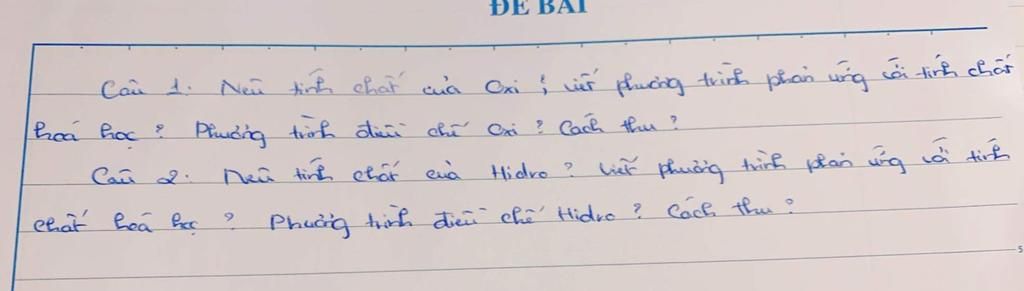 ĐỀ BÀI
Câu 1. Nêu tính chất của Oxi ; viết phương trình phản ứng với tính chất
hoá học ? Phương trình điều chế Oxi ? Cách thu ?
Câu 2. Nêu tính chất của Hidro ? Viết phương trình phản ứng với tính
chất hoá học ? Phương trình điều chế Hidro ? Cách thu ?
5